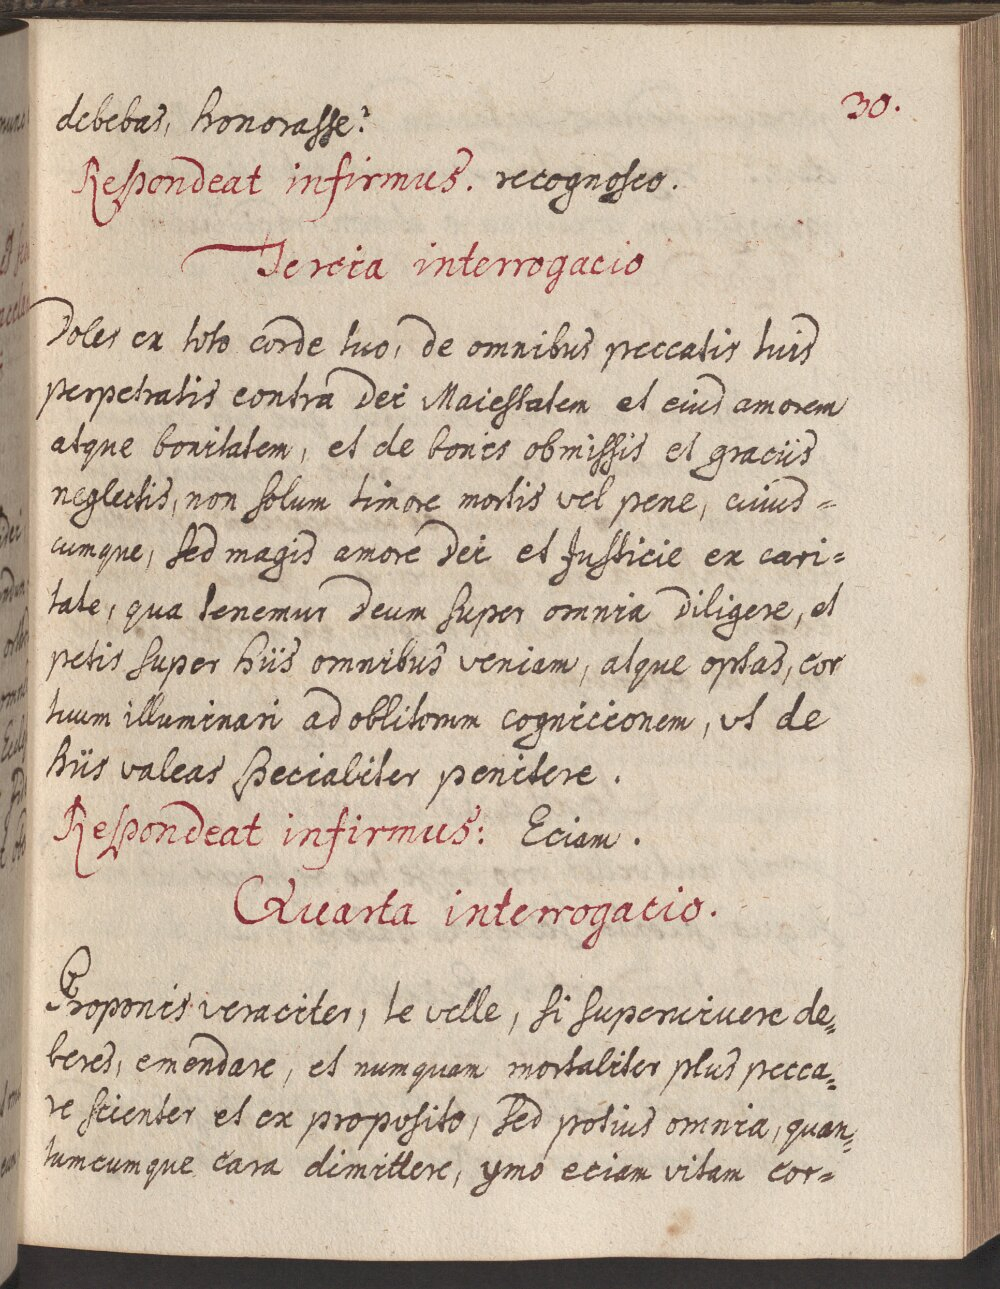 30.
debebas, honorasse?
Respondeat infirmus. recognosco.
Tercia interrogacio
Doles ex toto corde tuo, de omnibus peccatis tuis
perpetratis contra Dei Maiestatem et eius amorem
atque bonitatem, et de bonis obmissis et graciis
neglectis, non solum timore mortis vel pene, cuius=
cumque, sed magis amore Dei et Justicie ex cari=
tate, qua tenemur Deum super omnia diligere, et
petis super hiis omnibus veniam, atque optas, cor
tuum illuminari ad oblitorum cognicionem, ut de
hiis valeas specialiter penitere.
Respondeat infirmus: Eciam.
Quarta interrogacio.
Proponis veraciter, te velle, si supervivere de=
beres, emendare, et numquam mortaliter plus pecca=
re scienter et ex proposito, sed potius omnia, quan=
tumcumque cara dimittere, ymo eciam vitam cor=